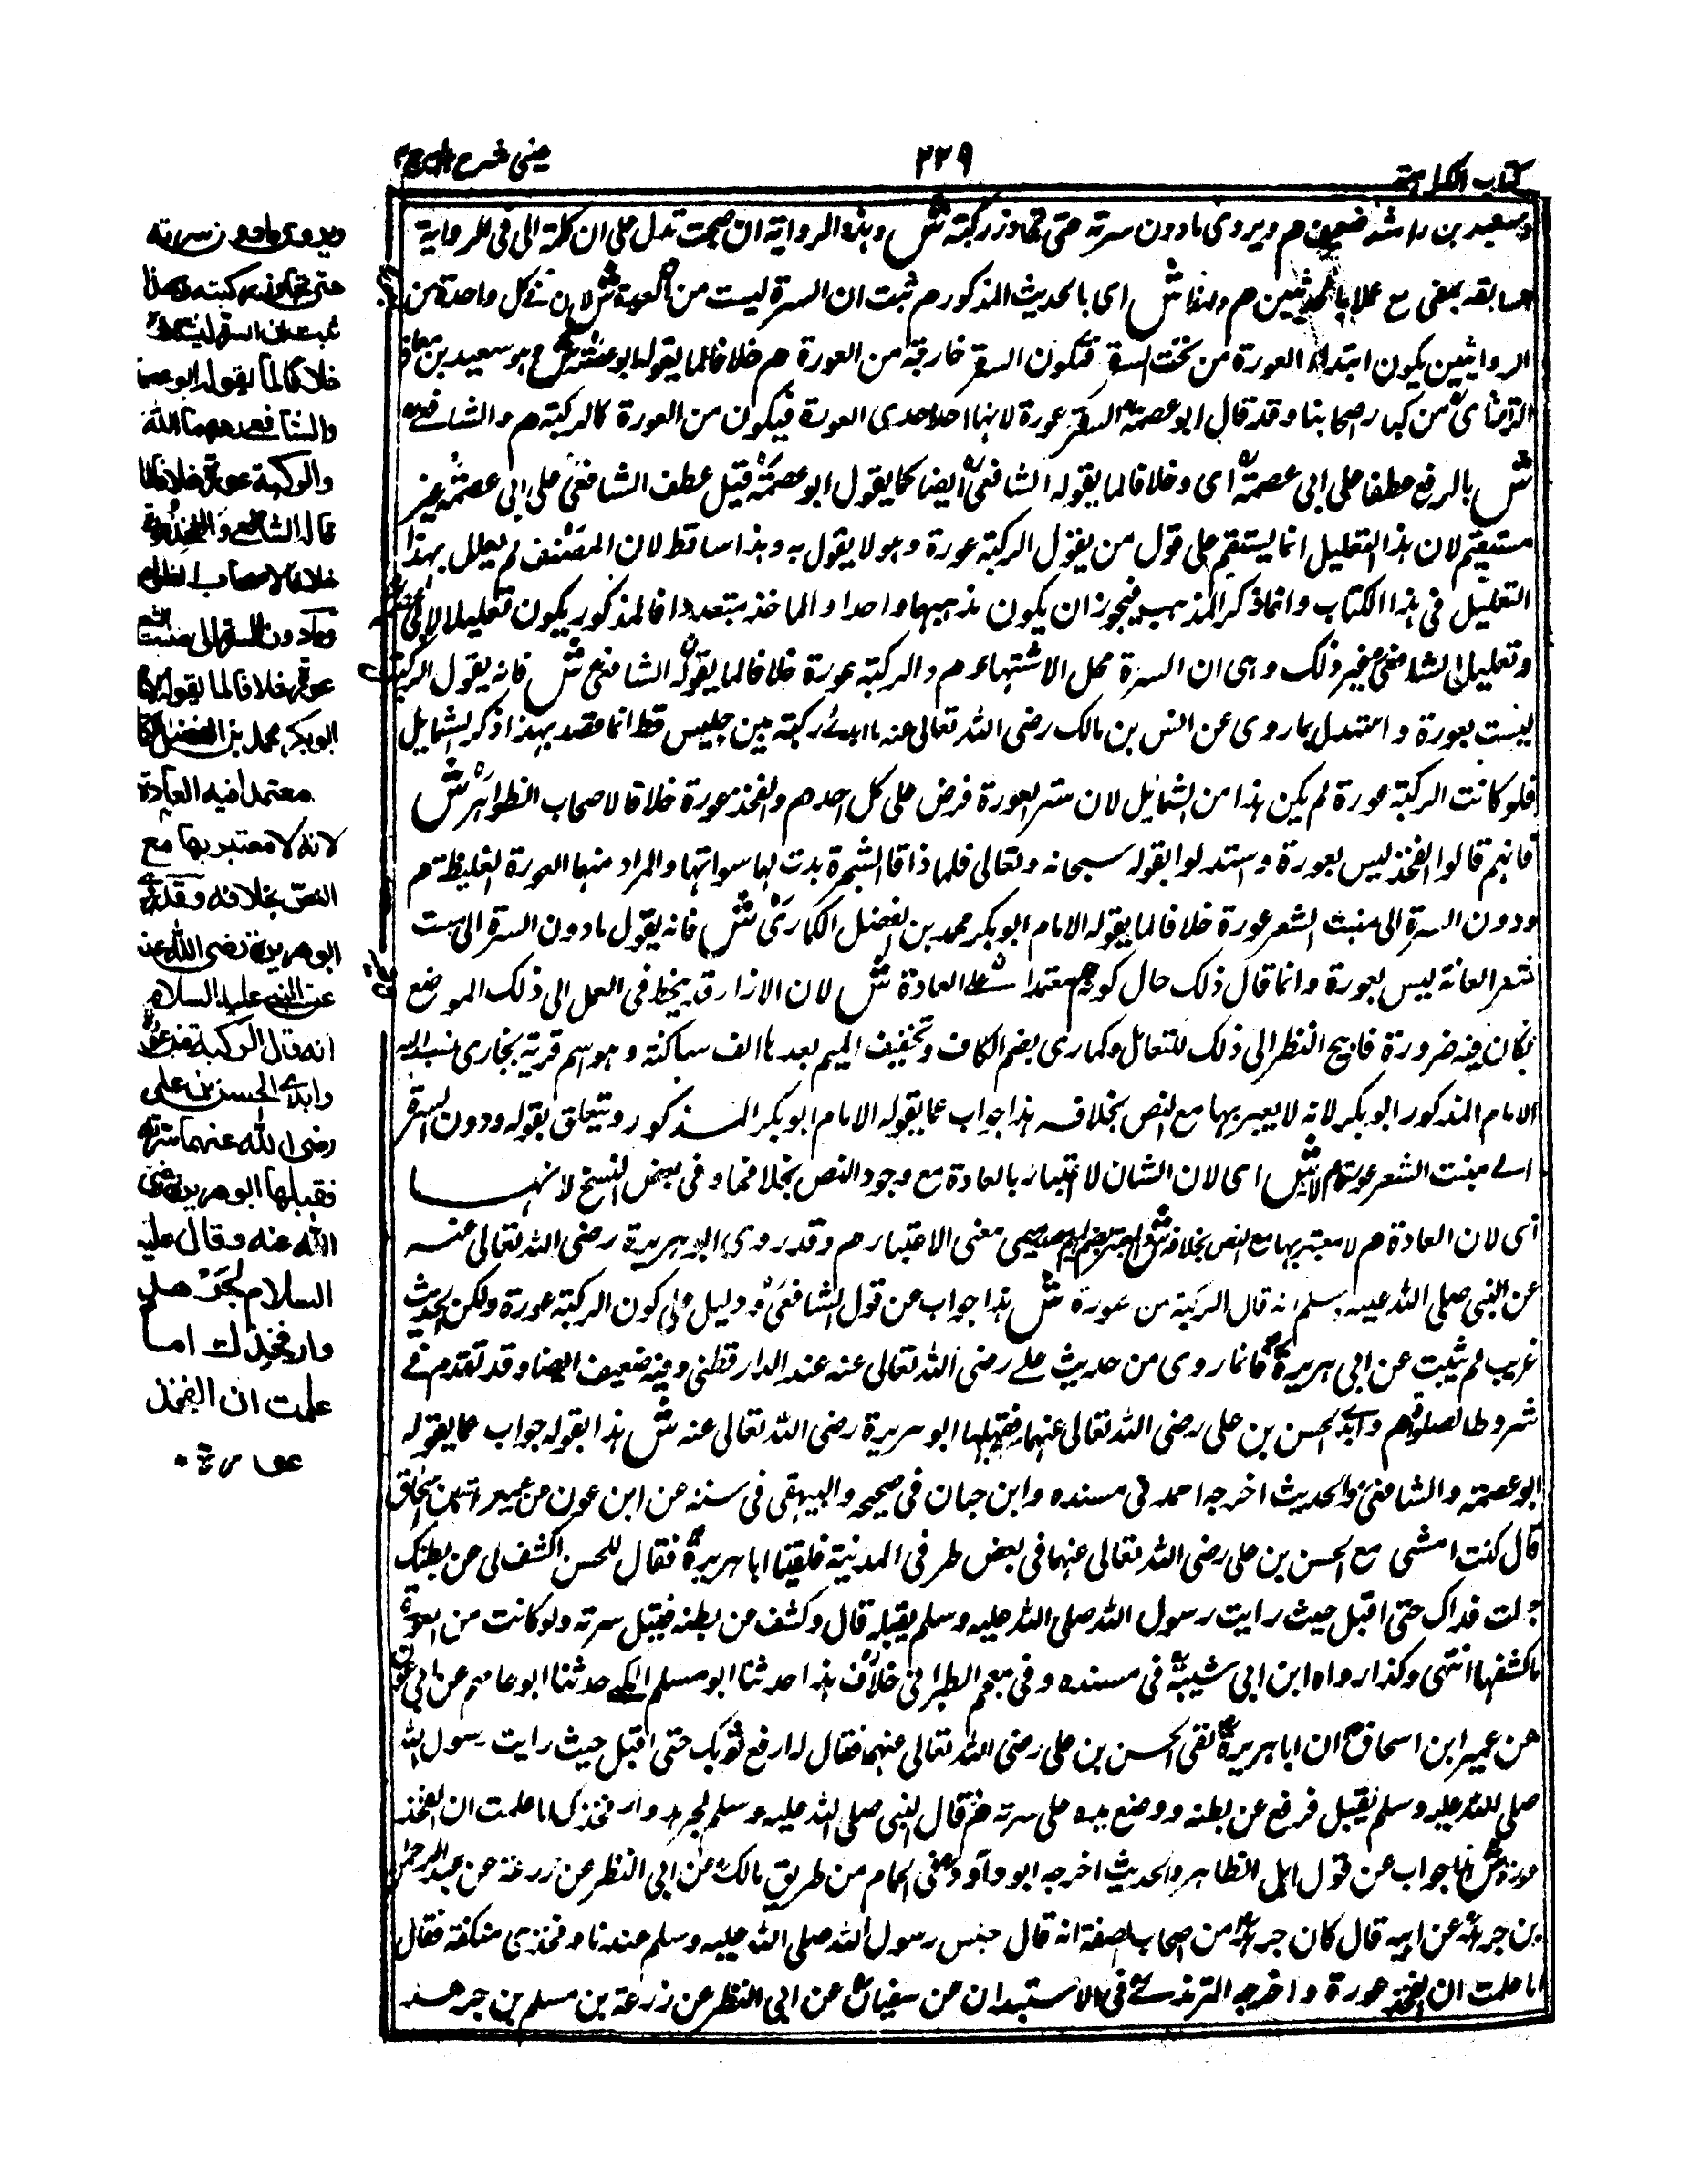 كتاب الكراهية
٢٢٩
عینی شرح هدایه
وسعيد بن راشد ضعيف هم ويروى مادون سرته حتى تجاوز ركبته ش وبهذه الرواية ان صحت تدل على ان كلمة الى فى الرواية
السابقة بمعنى مع عملا بالحديثين هم وبهذا ش اى بالحديث المذكور هم ثبت ان السرة ليست من العورة ش لان فى كل واحدة من
الروايتين يكون ابتداء العورة من تحت السرة فتكون السرة خارجة من العورة هم خلافا لما يقوله ابو عصمة ش هو سعيد بن معاذ
من كبار اصحابنا وقد قال ابو عصمة السرة عورة لانها احد احدى العورة فيكون من العورة كالركبة هم والشافعى
ش بالرفع عطفا على ابى عصمة اى وخلافا لما يقوله الشافعى ايضا كما يقول ابو عصمة قيل عطف الشافعى على ابى عصمة غير
مستقيم لان هذا التعليل انما يستقيم على قول من يقول الركبة عورة وهو لا يقول به وهذا ساقط لان المصنف لم يعلل بهذا
التعليل فى هذا الكتاب وانما ذكر المذهب فيجوز ان يكون مذهبهما واحدا والماخذ متعددا فالمذكور يكون تعليلا لابى عصمة
وتعليل الشافعى غير ذلك وهى ان السرة محل الاشتهاء هم والركبة عورة خلافا لما يقوله الشافعى ش فانه يقول الركبة
ليست بعورة واستدل بما روى عن انس بن مالك رضى الله تعالى عنه ما ابدى ركبته بين جليس قط انما قصد بهذا ذكر الشمايل
فلو كانت الركبة عورة لم يكن هذا من الشمايل لان ستر العورة فرض على كل احد هم والفخذ عورة خلافا لاصحاب الظواهر ش
فانهم قالوا الفخذ ليس بعورة واستدلوا بقوله سبحانه وتعالى فلما ذاقا الشجرة بدت لهما سواتهما والمراد منها العورة الغليظة هم
ودون السرة الى منبت الشعر عورة خلافا لما يقوله الامام ابو بكر محمد بن الفضل الكمارى ش فانه يقول مادون السرة الى منبت
شعر العانة ليس بعورة وانما قال ذلك حال كونه معتمدا على العادة ش لان الازار قد ينحط فى العمل الى ذلك الموضع
فكان فيه ضرورة فابيح النظر الى ذلك للتعامل وكمارى بضم الكاف وتخفيف الميم بعدها الف ساكنة وهو اسم قرية ببخارى نسب اليه
الامام المذكور ابو بكر لانه لا يعتبر بها مع النص بخلافه هذا جواب عما يقوله الامام ابو بكر المذكور ويتعلق بقوله ودون السرة
الى منبت الشعر عورة هم لانه ش اى لان الشان لا اعتبار بالعادة مع وجود النص بخلافها وفى بعض النسخ لانها
اى لان العادة هم لا معتبر بها مع النص بخلافه ش بمعنى الاعتبار هم وقد روى ابو هريرة رضى الله تعالى عنه
عن النبى صلى الله عليه وسلم انه قال الركبة من عورة ش هذا جواب عن قول الشافعى ودليل على كون الركبة عورة ولكن الحديث
غريب لم يثبت عن ابى هريرة فانما روى من حديث على رضى الله تعالى عنه عند الدارقطنى وفيه ضعيف ايضا وقد تقدم فى
شروط الصلوة هم وابدى الحسن بن على رضى الله تعالى عنهما سرته فقبلها ابو هريرة رضى الله تعالى عنه ش هذا بقوله جواب عما يقوله
ابو عصمة والشافعى والحديث اخرجه احمد فى مسنده وابن حبان فى صحيحه والبيهقى فى سننه عن ابن عون عن عمير بن اسحاق
قال كنت امشى مع الحسن بن على رضى الله تعالى عنهما فى بعض طرق المدينة فلقينا ابا هريرة فقال للحسن اكشف لى عن بطنك
جعلت فداك حتى اقبل حيث رايت رسول الله صلى الله عليه وسلم يقبله قال وكشف عن بطنه فقبل سرته ولو كانت من العورة
ما كشفها انتهى وكذا رواه ابن ابى شيبة فى مسنده وفى معجم الطبرانى خلاف هذا حدثنا ابو مسلم الكجى حدثنا ابو عاصم عن ابى عون
عن عمير ابن اسحاق ان ابا هريرة لقى الحسن بن على رضى الله تعالى عنهما فقال له ارفع ثوبك حتى اقبل حيث رايت رسول الله
صلى الله عليه وسلم يقبل فرفع عن بطنه ووضع يده على سرته هم قال النبى صلى الله عليه وسلم لجرهد وار فخذك اما علمت ان الفخذ
عورة ش هذا جواب عن قول اهل الظاهر والحديث اخرجه ابو داود فى الحمام من طريق مالك عن ابى النظر عن زرعة عن عبد الرحمن
بن جرهد عن ابيه قال كان جرهد من اصحاب الصفة انه قال جلس رسول الله صلى الله عليه وسلم عندنا وفخذى منكشفة فقال
اما علمت ان الفخذ عورة واخرجه الترمذى فى الاستيذان عن سفيان عن ابى النظر عن زرعة بن مسلم بن جرهد
ويروى ما دون سرته
حتى تجاوز ركبته وبهذا
ثبت ان السرة ليست
خلافا لما يقوله ابو عصمة
والشافعى رحمهما الله
والركبة عورة خلافا لما
قاله الشافعي والفخذ عورة
خلافا لاصحاب الظواهر
وما دون السرة الى منبت الشعر
عورة خلافا لما يقوله الامام
ابو بكر محمد بن الفضل الكمارى
معتمدا فيه العادة
لانه لا معتبر بها مع
النص بخلافه وقد روى
ابو هريرة رضى الله عنه
عن النبي عليه السلام
انه قال الركبة من العورة
وابدى الحسن بن على
رضى الله عنهما سرته
فقبلها ابو هريرة رضى
الله عنه وقال عليه
السلام لجرهد
وار فخذك اما
علمت ان الفخذ
عورة